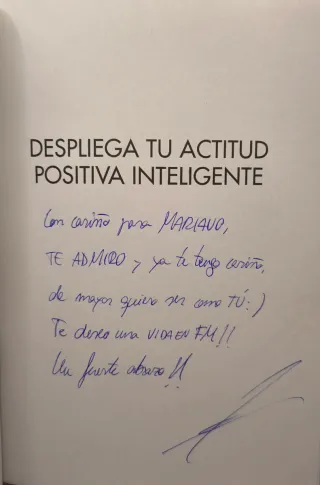 DESPLIEGA TU ACTITUD
POSITIVA INTELIGENTE
Con cariño para MARIANO,
TE ADMIRO y ya te tengo cariño,
de mayor quiero ser como TÚ :)
Te deseo una VIDA EN FM!!
Un fuerte abrazo!!